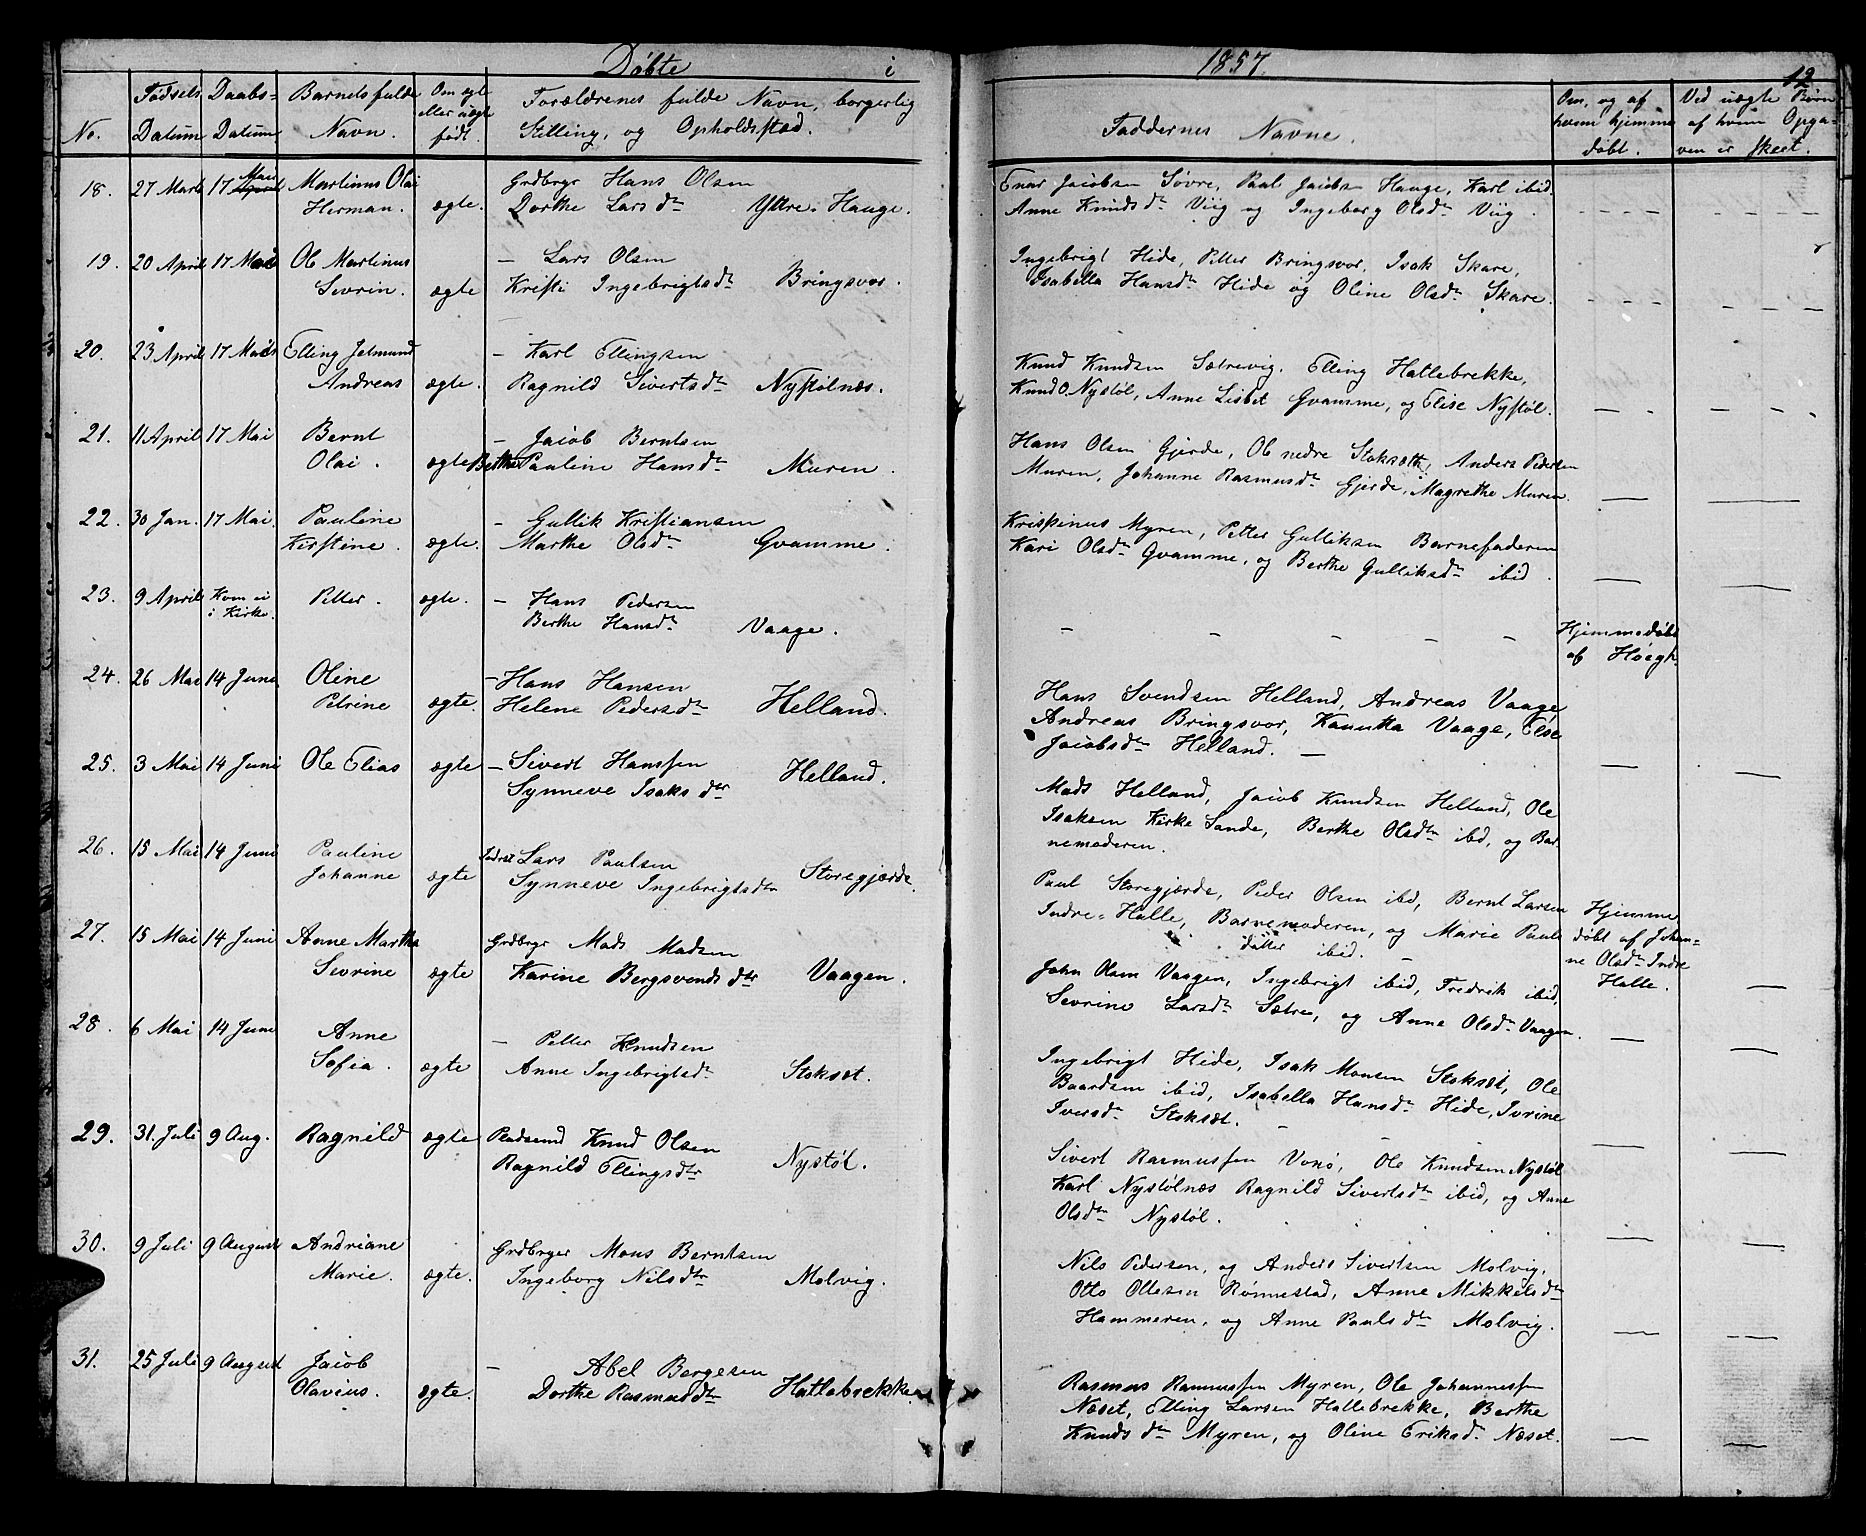 Døbte i 1857. 12
No.
Fødsels Datum
Daabs- Datum
Barnets fulde Navn.
Om ægte eller uægte født.
Forældrenes fulde Navn, borgerlig Stilling, og Opholdsstæd.
Faddernes Navne.
Om, og af hvem hjemme døbt.
Ved uægte Børn af hvem Opga- ven er skeet.
18. 27 Marts 17 April Mai Martinus Olai Grdbrgr Hans Olsen
Herman. ægte. Dorthe Larsdtr Yttre-Hauge.
Enar Jacobsen Søvre, Paul Jacobs Hauge, Karl ibid.
Anne Knudsdtr Viig og Ingeborg Olsdtr Viig.
19. 20 April 17 Mai Ole Martinus – Lars Olsen
Sevrin. ægte Kristi Ingebrigtsdtr Bringsvor.
Ingebrigt Hide, Petter Bringsvor, Isak Skare,
Isabella Hansdtr Hide og Oline Olsdtr Skare.
20. 23 April 17 Mai Elling Jetmund – Karl Ellingsen
Andreas ægte. Ragnild Sivertsdtr Nystølnæs.
Knud Knudsen Sætrevig, Elling Hatlebrekke,
Knud O. Nystøl, Anne Lisbet Gvamme, og Elise Nystøl.
21. 11 April 17 Mai Bernt – Jacob Berntsen
Olai. ægte Berthe Pauline Hansdtr Muren.
Hans Olsen Gjerde, Ole nedre Stoksæth, Anders Pedersen
Muren, Johanne Rasmusdtr Gjerde, Magrethe Muren.
22. 30 Jan. 17 Mai. Pauline – Gullik Kristiansen
Kirstine. ægte. Marthe Olsdtr Gvamme.
Krispinus Myren, Petter Gulliksen Barnefaderen
Kari Olsdtr Gvamme, og Berthe Gulliksdtr ibid.
23. 9 April Kom ei i Kirke. Petter. ægte. – Hans Pedersen
Berthe Hansdtr Vaage.
Hjemmedøbt
af Høegh.
24. 26 Mai 14 Juni Oline – Hans Hansen
Petrine ægte. Helene Pedersdtr Helland.
Hans Svendsen Helland, Andreas Vaage
Andreas Bringsvor, Kanutta Vaage, Else
Jacobsdtr Helland. –
25. 3 Mai 14 Juni Ole Elias ægte – Sivert Hanssen
Synneve Isaksdtr Helland.
Mads Helland, Jacob Knudsen Helland, Ole
Isaksen Kirke Sande, Berthe Olsdtr ibid, og Bar-
nemoderen.
26. 15 Mai 14 Juni Pauline Lars Paulsen
Johanne ægte Synneve Ingebrigtsdtr Storegjærde.
Paul Storegjærde, Peder Olsen ibid, Bernt Larsen
Indre-Halle, Barnemoderen, og Marie Pauls
datter ibid. –
Hjemme
døbt af Johan-
ne Olsdtr Indre
Halle.
27. 15 Mai 14 Juni Anne Marthe Grdbrgr Mads Madsen
Sevrine ægte Karine Bergsvendsdtr Vaagen.
John Olsen Vaagen, Ingebrigt ibid, Fredrik ibid,
Sevrine Larsdtr Sætre, og Anne Olsdtr Vaagen.
28. 6 Mai 14 Juni Anne – Petter Knudsen
Sofia. ægte Anne Ingebrigtsdtr Stoksæt.
Ingebrigt Hide, Isak Monsen Stoksæt, Ole
Baardsen ibid, Isabella Hansdtr Hide, Ivrine
Iversdtr Stoksæt.
29. 31. Juli 9 Aug. Ragnild ægte Pladsmd Knud Olsen
Ragnild Ellingsdtr Nystøl.
Sivert Rasmussen Vonø, Ole Knudsen Nystøl
Karl Nystølnæs Ragnild Sivertsdtr ibid, og Anne
Olsdtr Nystøl.
30. 9 Juli 9 August Andriane Grdbrger Mons Berntsen
Marie. ægte. Ingeborg Nilsdtr Molvig.
Nils Pedersen, og Anders Sivertsen Molvig,
Otto Ottesen Rønnestad, Anne Mikkelsdtr
Hammeren, og Anne Paulsdtr Molvig.
31. 25 Juli 9 August Jacob – Abel Børgesen
Olavius. ægte. Dorthe Rasmusdtr Hatlebrekke.
Rasmus Rasmussen Myren, Ole Johannessen
Næset, Elling Larsen Hatlebrekke, Berthe
Knudsdtr Myren, og Oline Eriksdtr Næset.